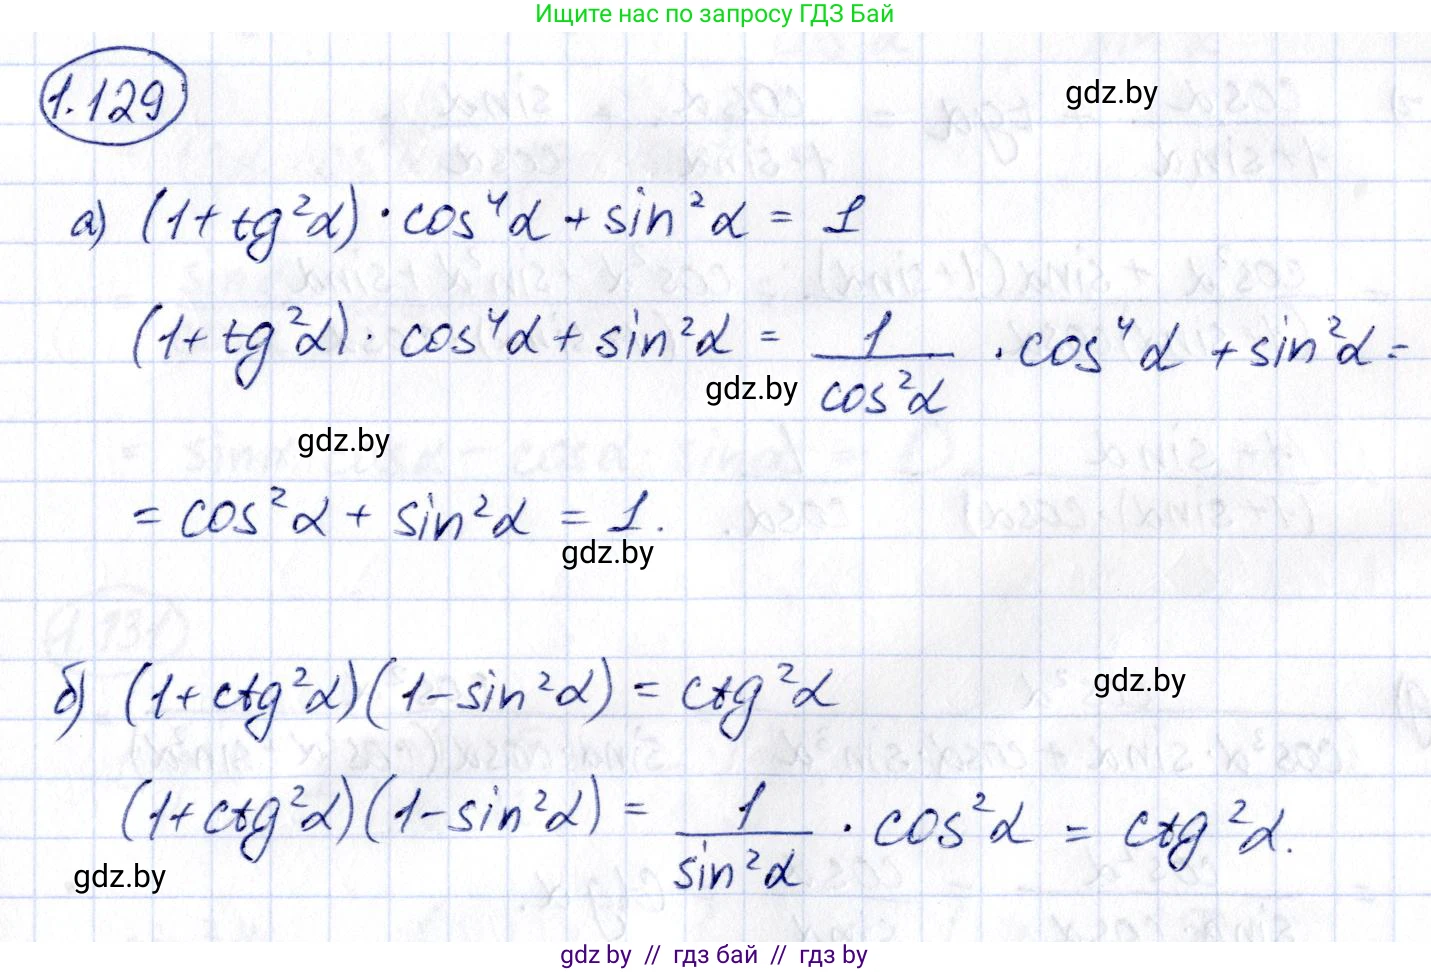 Ищите нас по запросу ГДЗ Бай
1.129
gdz.by
а) (1+tg²α)·cos⁴α+sin²α=1
(1+tg²α)·cos⁴α+sin²α = 1/cos²α ·cos⁴α+sin²α=
gdz.by
gdz.by
=cos²α+sin²α=1.
gdz.by
б) (1+ctg²α)(1-sin²α)=ctg²α
gdz.by
(1+ctg²α)(1-sin²α) = 1/sin²α · cos²α = ctg²α.
gdz.by
gdz.by // гдз бай // гдз by